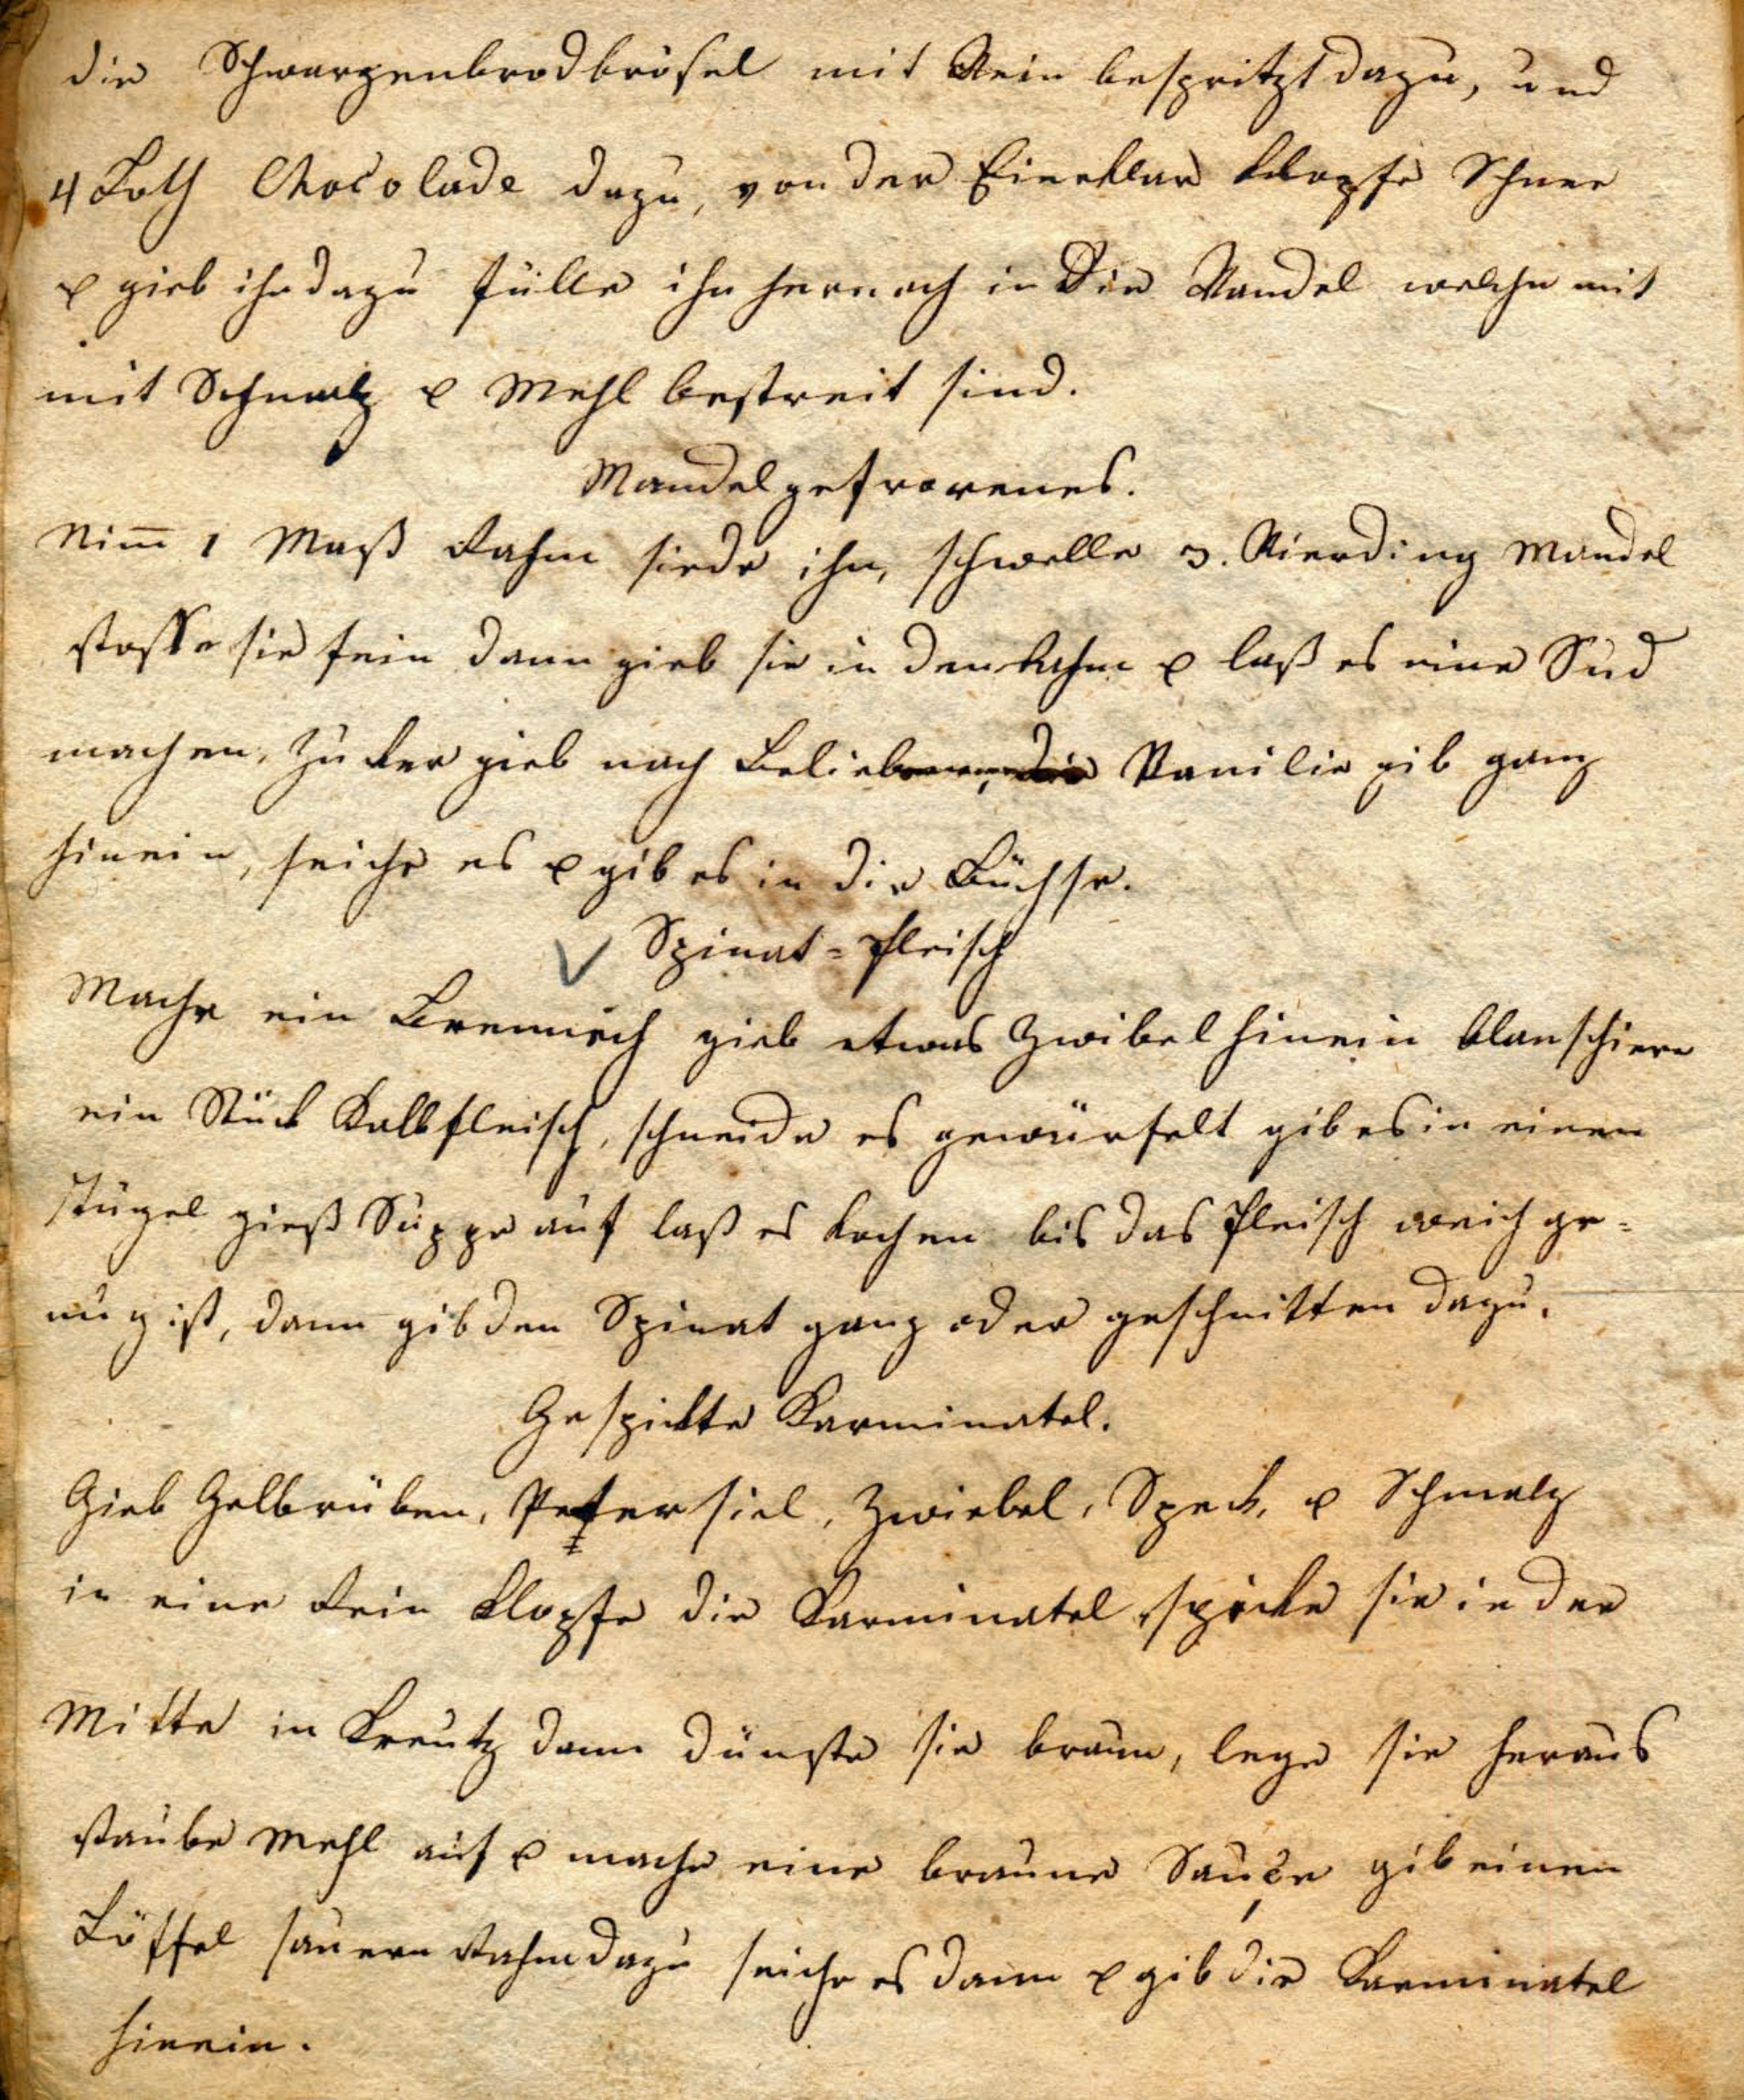 die Schwarzenbrodbrösel mit Wein bespritzt dazu, und
4 Loth Chocolade dazu, von der Eierklar klopfe Schnee
& gieb ihn dazu fülle ihn hernach in die Wandel welche mit
mit Schmalz & Mehl bestreit sind.
Mandelgefrorenes.
Nim̄ 1 Maß Rahm siede ihn, schwelle 3. Vierding Mandel
stosse sie fein dann gieb sie in den Rahm & laß es eine Sud
machen, Zucker gieb nach Belieben, die Vanilie gib ganz
hinein, seiche es & gib es in die Büchse.
Spinat=Fleisch
Mache ein Brennich gieb etwas Zwibel hinein blanschiere
ein Stück Kalbfleisch, schneide es gewürfelt gib es in einen
gieß Suppe auf laß es kochen bis das Fleisch weich ge=
nug ist, dann gib den Spinat ganz oder geschnitten dazu.
Gespickte Karminatel.
Gieb Gelbrüben, Petersiel, Zwiebel, Speck, & Schmalz
in eine Rein klopfe die Karminatel, spicke sie in der
Mitte in Kreutz dann dünste sie braun, lege sie heraus
staube Mehl auf & mache eine braune Sauce gib einen
Löffel sauern Rahm dazu seiche es dann & gib die Karminatel
hinein.